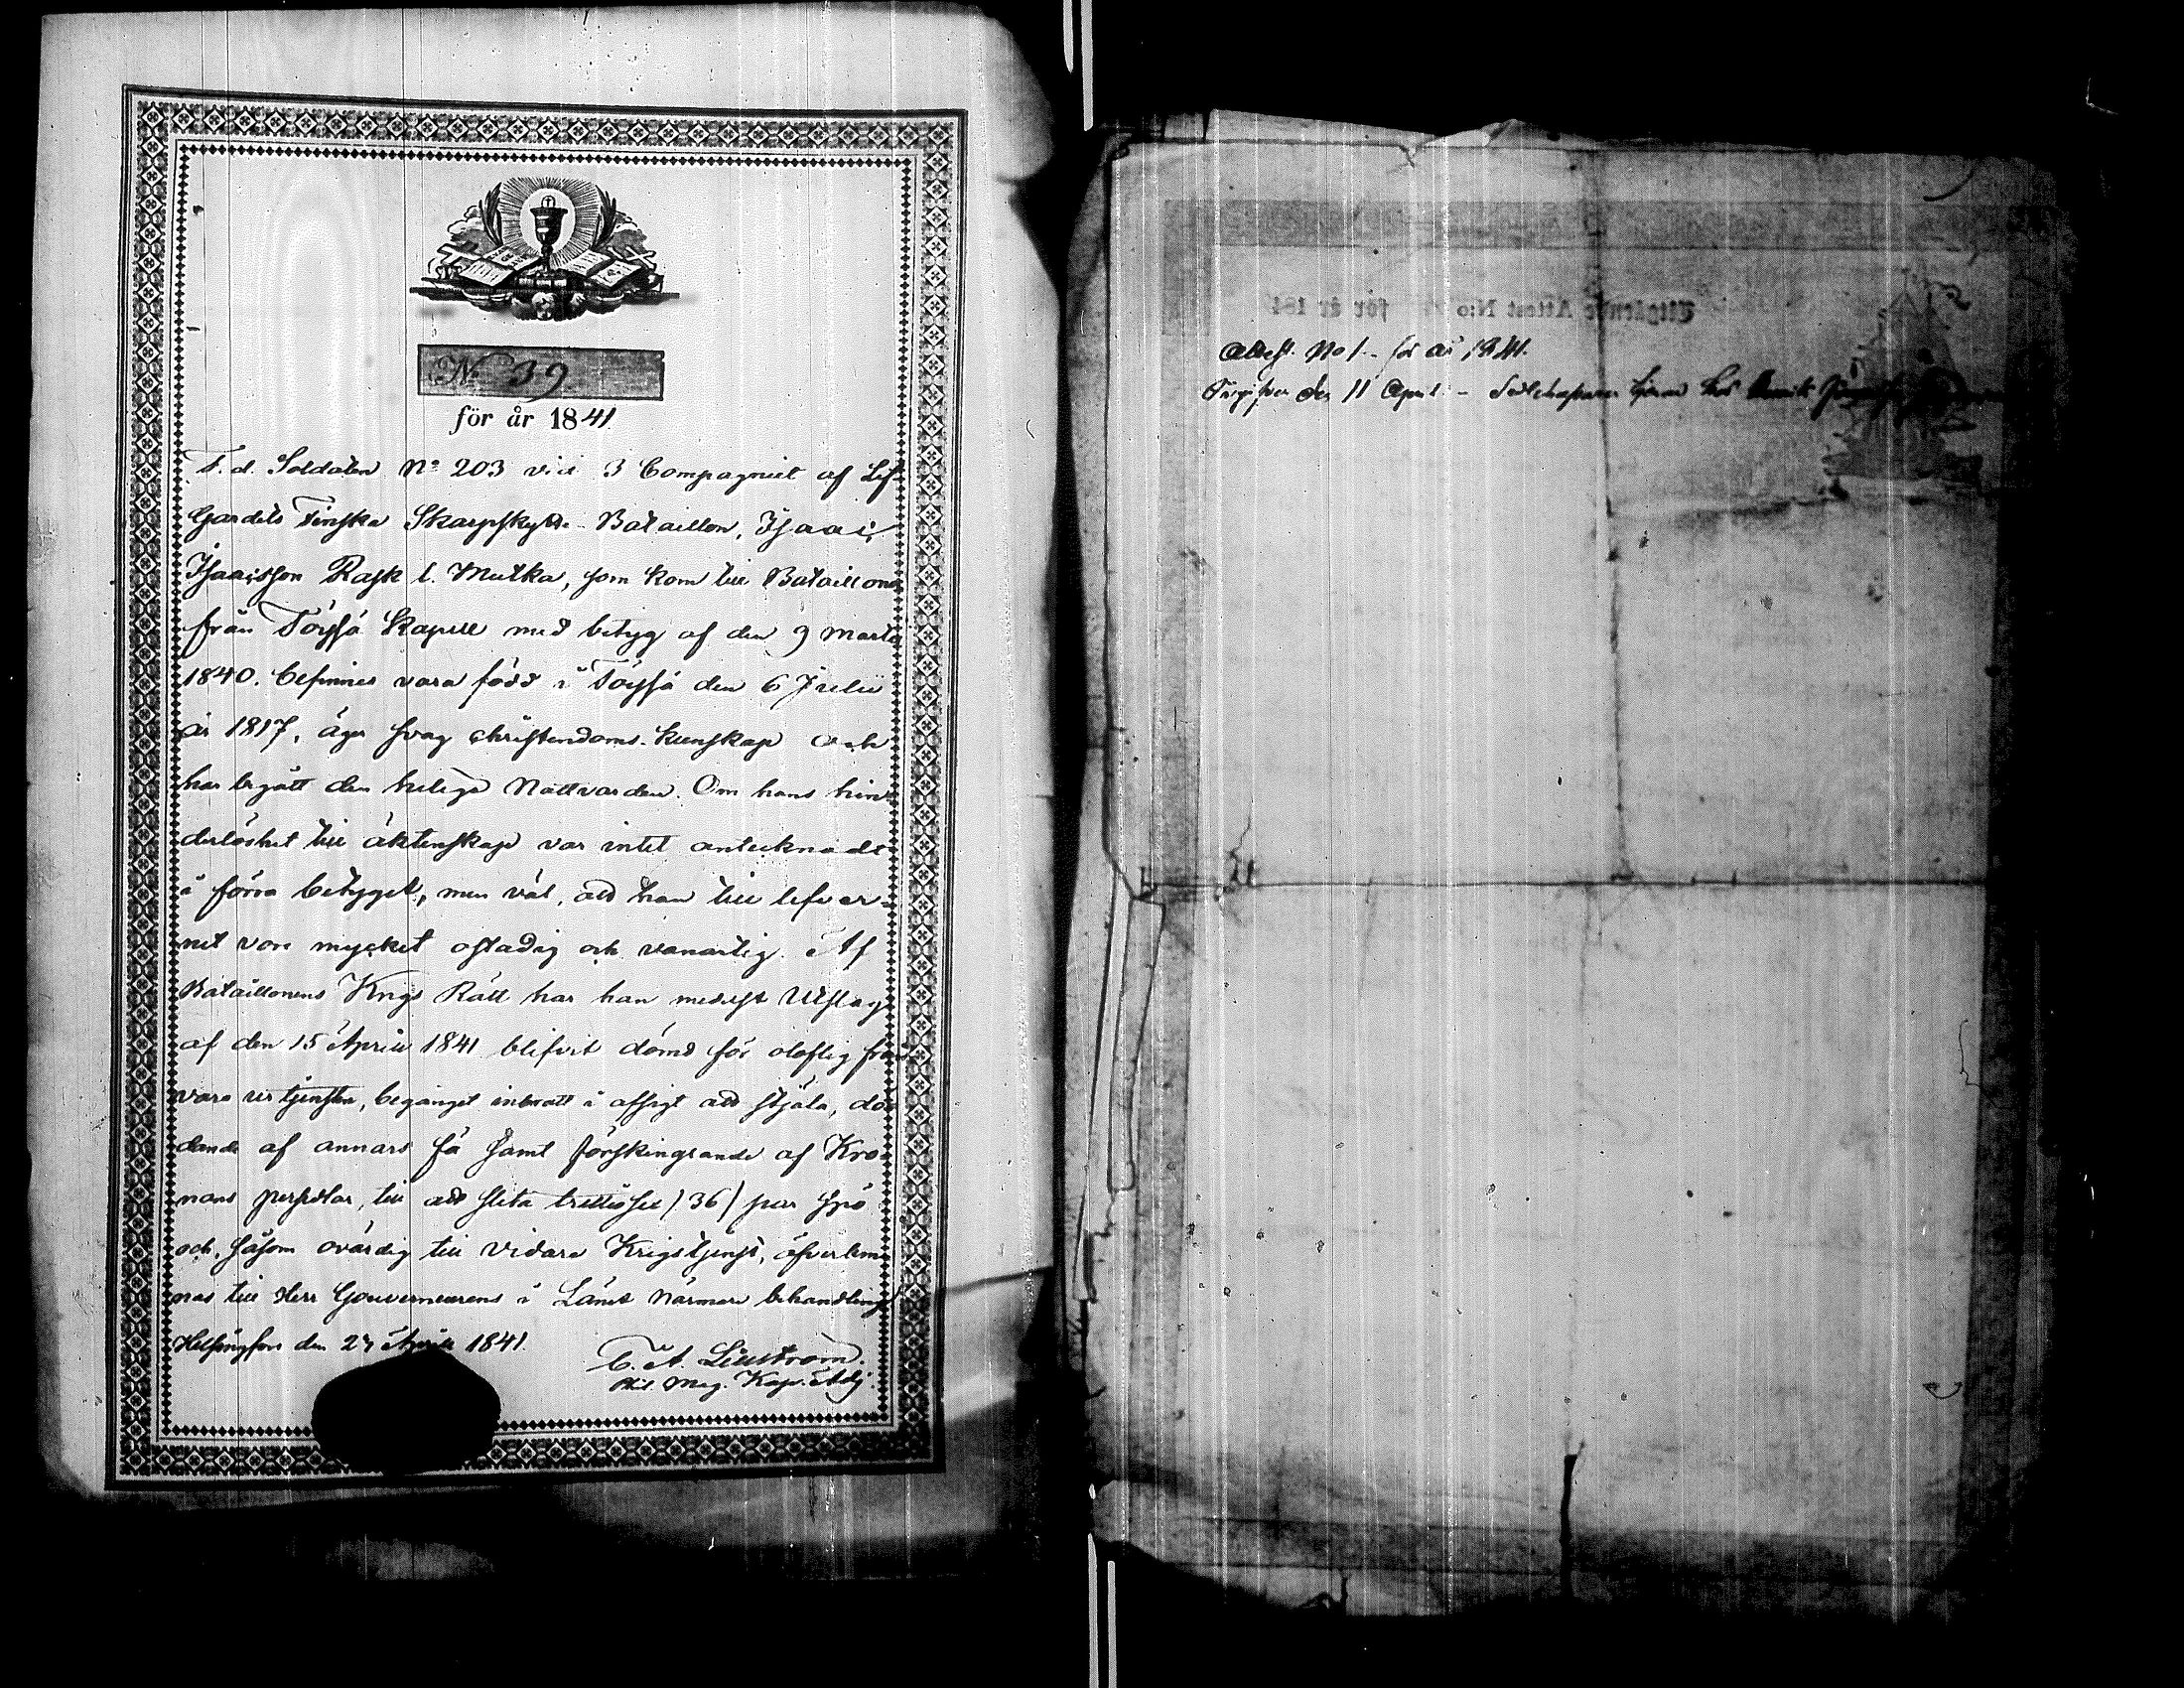 No 39
för år 1841
F. d. Soldaten No 203 vid 3 Compagniet af Lif-
Gardets Finska Skarpskytte-Bataillon, Isaac
Isaacsson Rask l. Mutka, som kom till Bataillonen
från Töysä Kapell med betyg af den 9 Martii
1840. befinnes vara född i Töysä den 6 Julii
år 1817, äger svag christendoms-kunskap och
har begått den heliga Nattvarden. Om hans hin-
derlöshet till äktenskap var intet antecknadt
i förra betyget, men väl, att han till lefver-
net vore mycket ostadig och vanartig. Af
Bataillonens Krigs Rätt har han medelst Utslag
af den 15 April 1841 blifvit dömd för oloflig från-
varo ur tjensten, begånget inbrott i afsigt att stjäla, dö-
dande af annars få samt förskingrande af Kro-
nans persedlar, till att slita trettiosex (36) par spö
och, såsom ovärdig till vidare Krigstjenst, öfverlem-
nas till Herr Gouverneurens i Länet närmare behandling.
Helsingfors den April 1841.
C. A. Lillström.
Phil. Mag. Kap. Adj.
Utgående Attest N:o för år 184
Attest. No 1. för år 1841.
den 11 April -